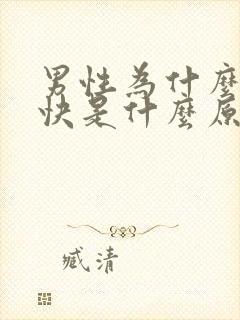 男性為什麼
快是什麼原
臧清